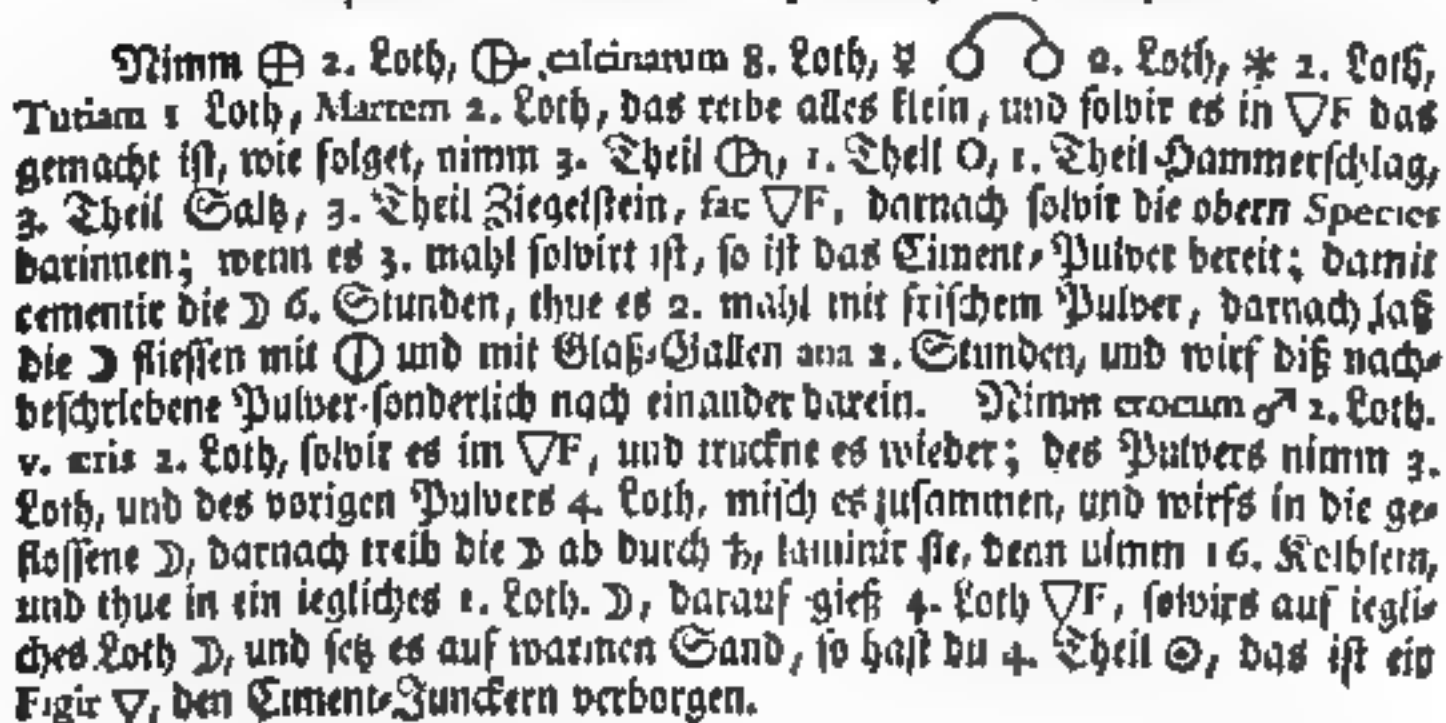 Nimm 🜨 2. Loth, 🜖 calcinatum 8. Loth, ☿ o⁀o 2. Loth, * 2. Loth,
Tutiam 1 Loth, Martem 2. Loth, das reibe alles klein, und solvir es in ▽F das
gemacht ist, wie folget, nimm 3. Theil 🜖, 1. Theil O, 1. Theil Hammerschlag,
3. Theil Saltz, 3. Theil Ziegelstein, fac ▽F, darnach solvir die obern Species
darinnen; wenn es 3. mahl solvirt ist, so ist das Ciment-Pulver bereit; damit
cementir die ☽ 6. Stunden, thue es 2. mahl mit frischem Pulver, darnach laß
die ☽ fliessen mit 🜕 und mit Glaß-Gallen ana 2. Stunden, und wirf diß nach-
beschriebene Pulver sonderlich nach einander darein. Nimm crocum ♂ 2. Loth.
v. æris 2. Loth, solvir es im ▽F, und truckne es wieder; des Pulvers nimm 3.
Loth, und des vorigen Pulvers 4. Loth, misch es zusammen, und wirfs in die ge-
flossene ☽, darnach treib die ☽ ab durch ♄, laminir sie, denn nimm 16. Kolblein,
und thue in ein iegliches 1. Loth. ☽, darauf gieß 4. Loth ▽F, solvirs auf iegli-
ches Loth ☽, und setz es auf warmen Sand, so hast du 4. Theil ☉, das ist ein
Figir ▽, den Ciment-Junckern verborgen.